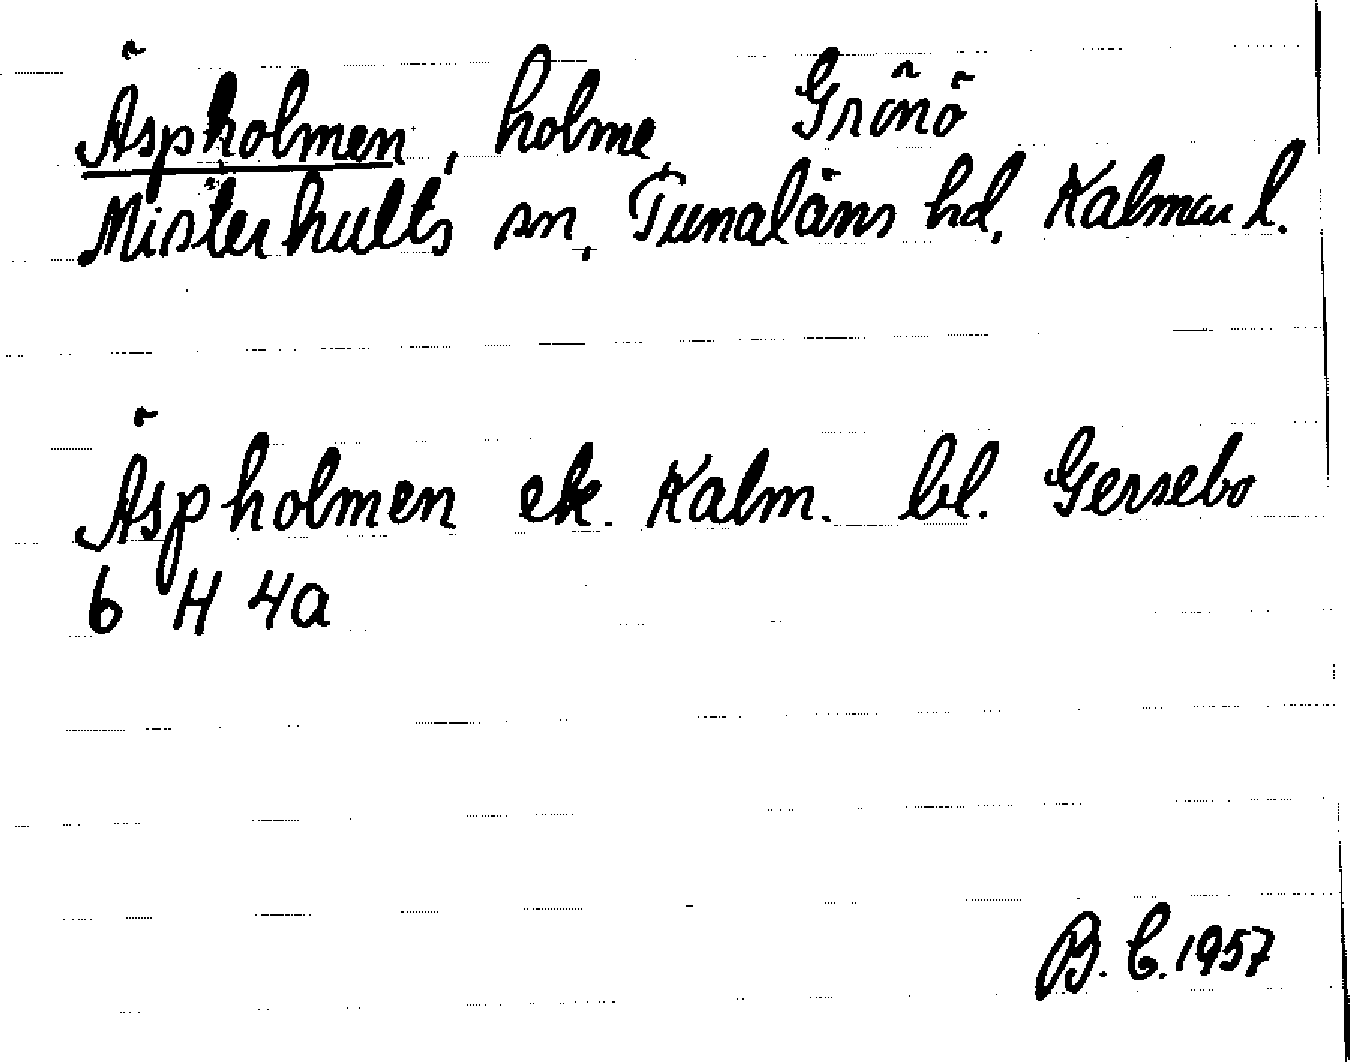 Äspholmen, holme, Grönö
Misterhults sn, Tunaläns hd, Kalmar l.
Äspholmen ek. Kalm. bl. Gersebo
6 H 4a
B. C. 1957